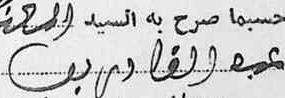 حسبما صرح به السيد
عبد القادر بو